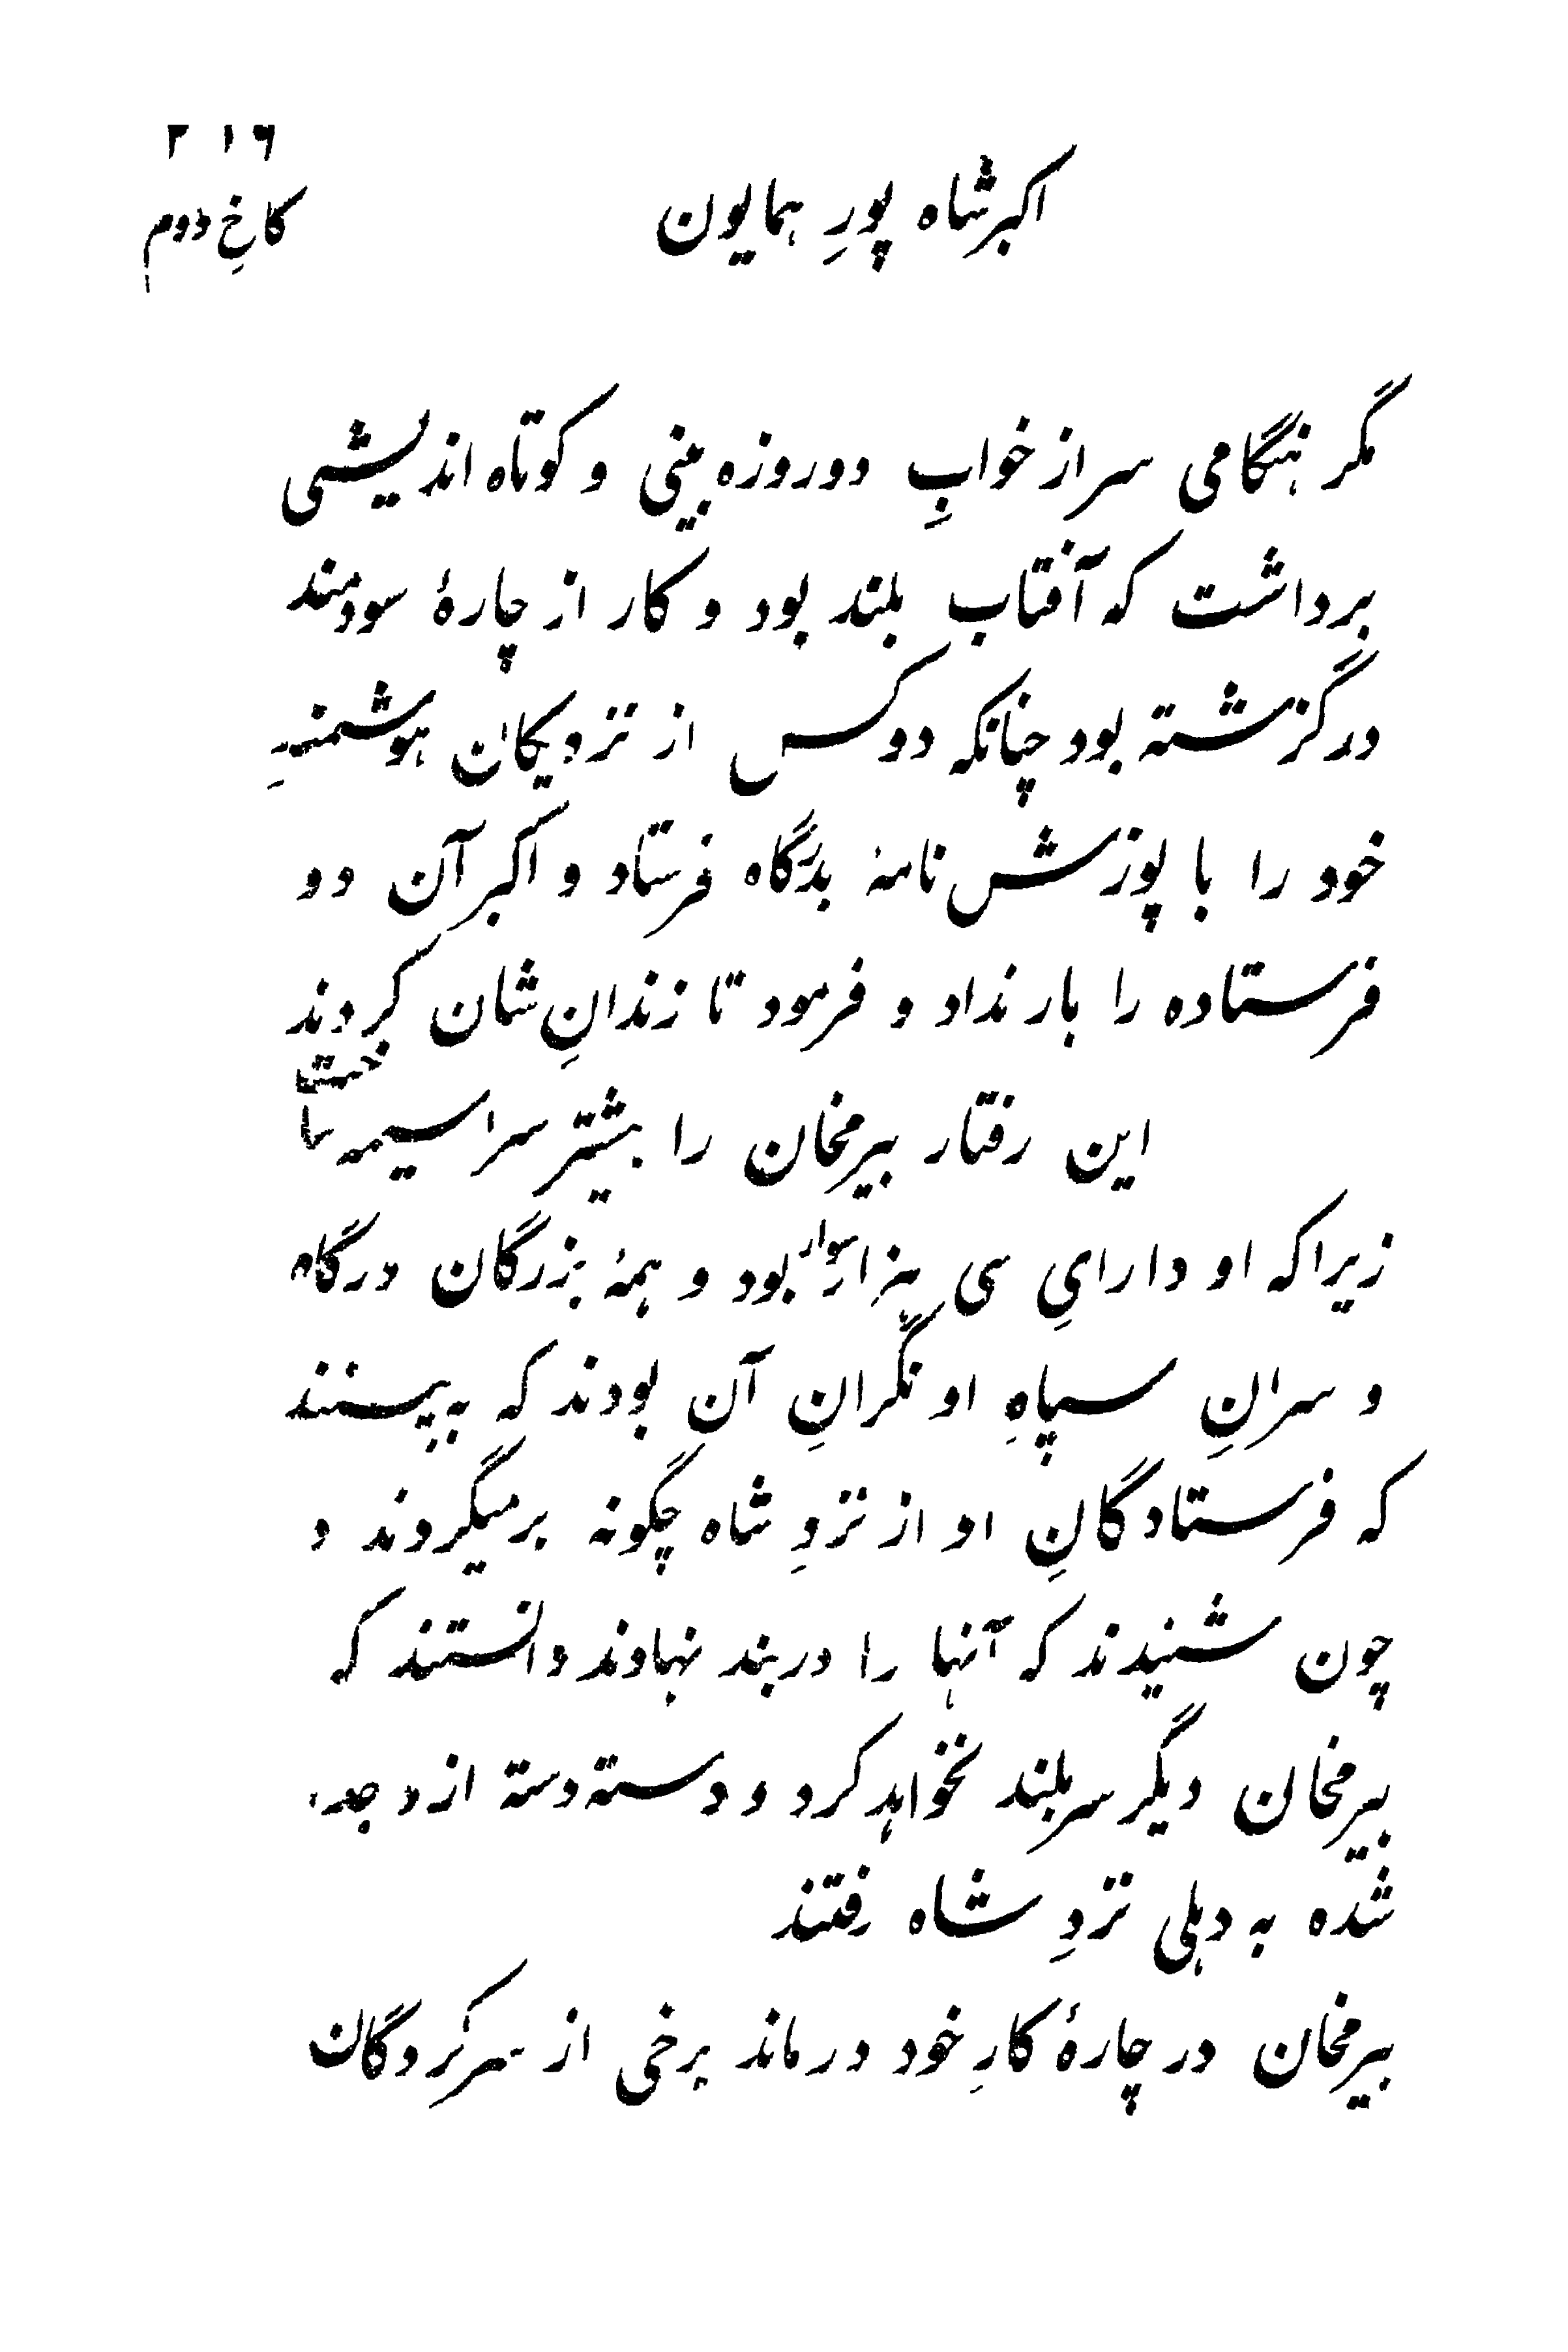 ۲۱۶
اکبرشاه پورِ همایون
کاخِ دوم
مگر هنگامی سر از خوابِ دو روزه بینی و کوتاه اندیشی
برداشت که آفتاب بلند بود و کار از چارهٔ سودمند
درگزشته بود چنانکه دو کس از نزدیکان هوشمندِ
خود را با پوزش نامهٔ بدرگاه فرستاد و اکبر آن دو
فرستاده را بار نداد و فرمود تا زندانِ شان کردند
این رفتار بیرمخان را بیشتر سراسیمه ساخت
زیرا که او دارایِ سی هزار سوار بود و همهٔ بزرگان درگاه
و سرانِ سپاهِ او نگرانِ آن بودند که به بینند
که فرستادگانِ او از نزدِ شاه چگونه برمیگردند و
چون شنیدند که آنها را دربند نهادند دانستند که
بیرمخان دیگر سر بلند نخواهد کرد و دسته دسته از و جدا
شده به دهلی نزدِ شاه رفتند
بیرمخان در چارهٔ کارِ خود درماند برخی از سرکردگان